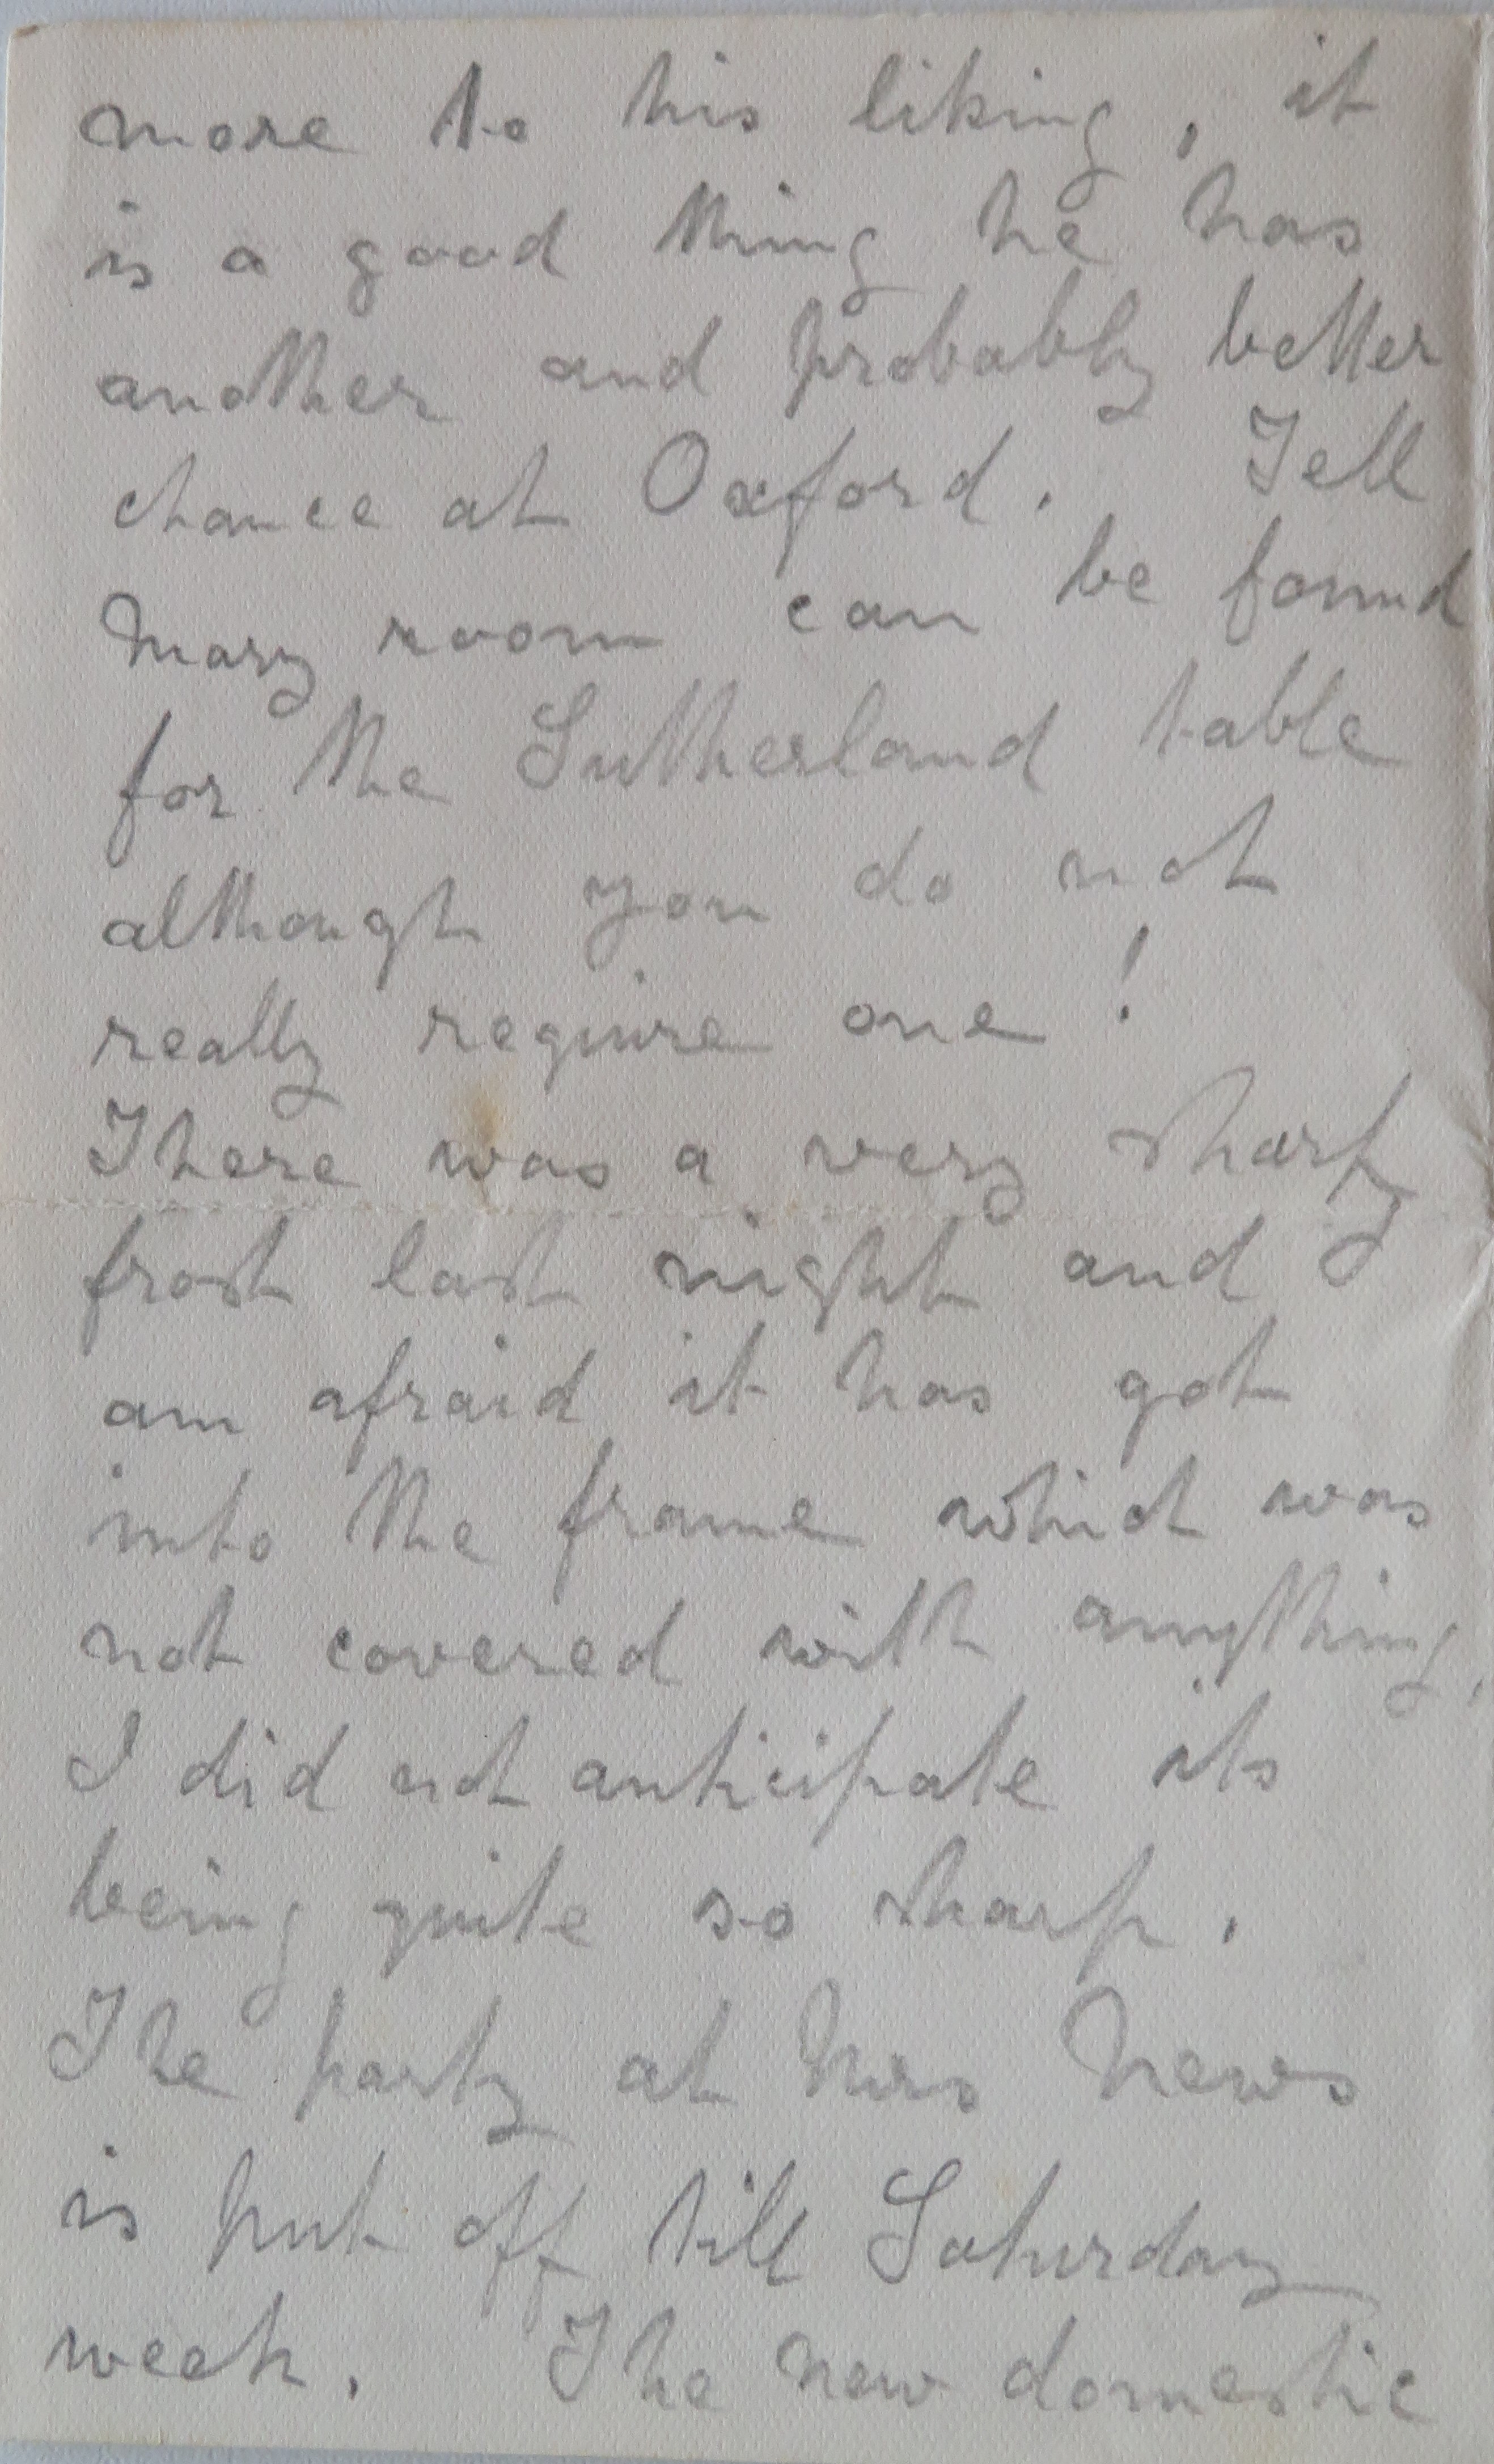 more to his liking, it
is a good thing he has
another and probably better
chance at Oxford. Tell
Mary room can be found
for the Sutherland table
although you do not
really require one!
There was a very sharp
frost last night and I
am afraid it has got
into the frame which was
not covered with anything,
I did not anticipate its
being quite so sharp.
The party at Mrs News
is put off till Saturday
week. The new domestic